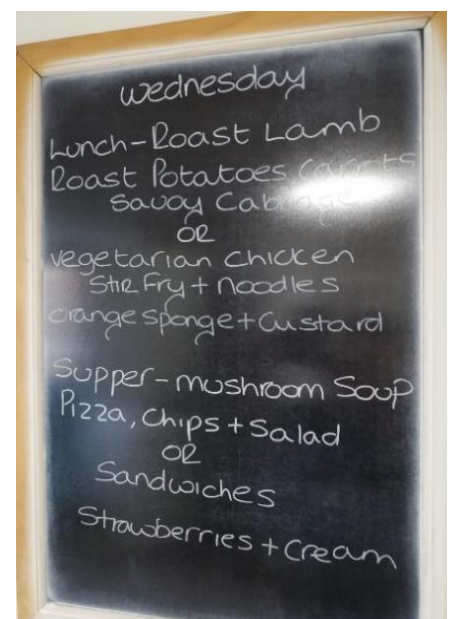 Wednesday
Lunch - Roast Lamb
Roast Potatoes Carrots
Savoy Cabbage
OR
vegetarian chicken
Stir Fry + noodles
orange sponge + Custard
Supper - mushroom Soup
Pizza, Chips + Salad
OR
Sandwiches
Strawberries + Cream